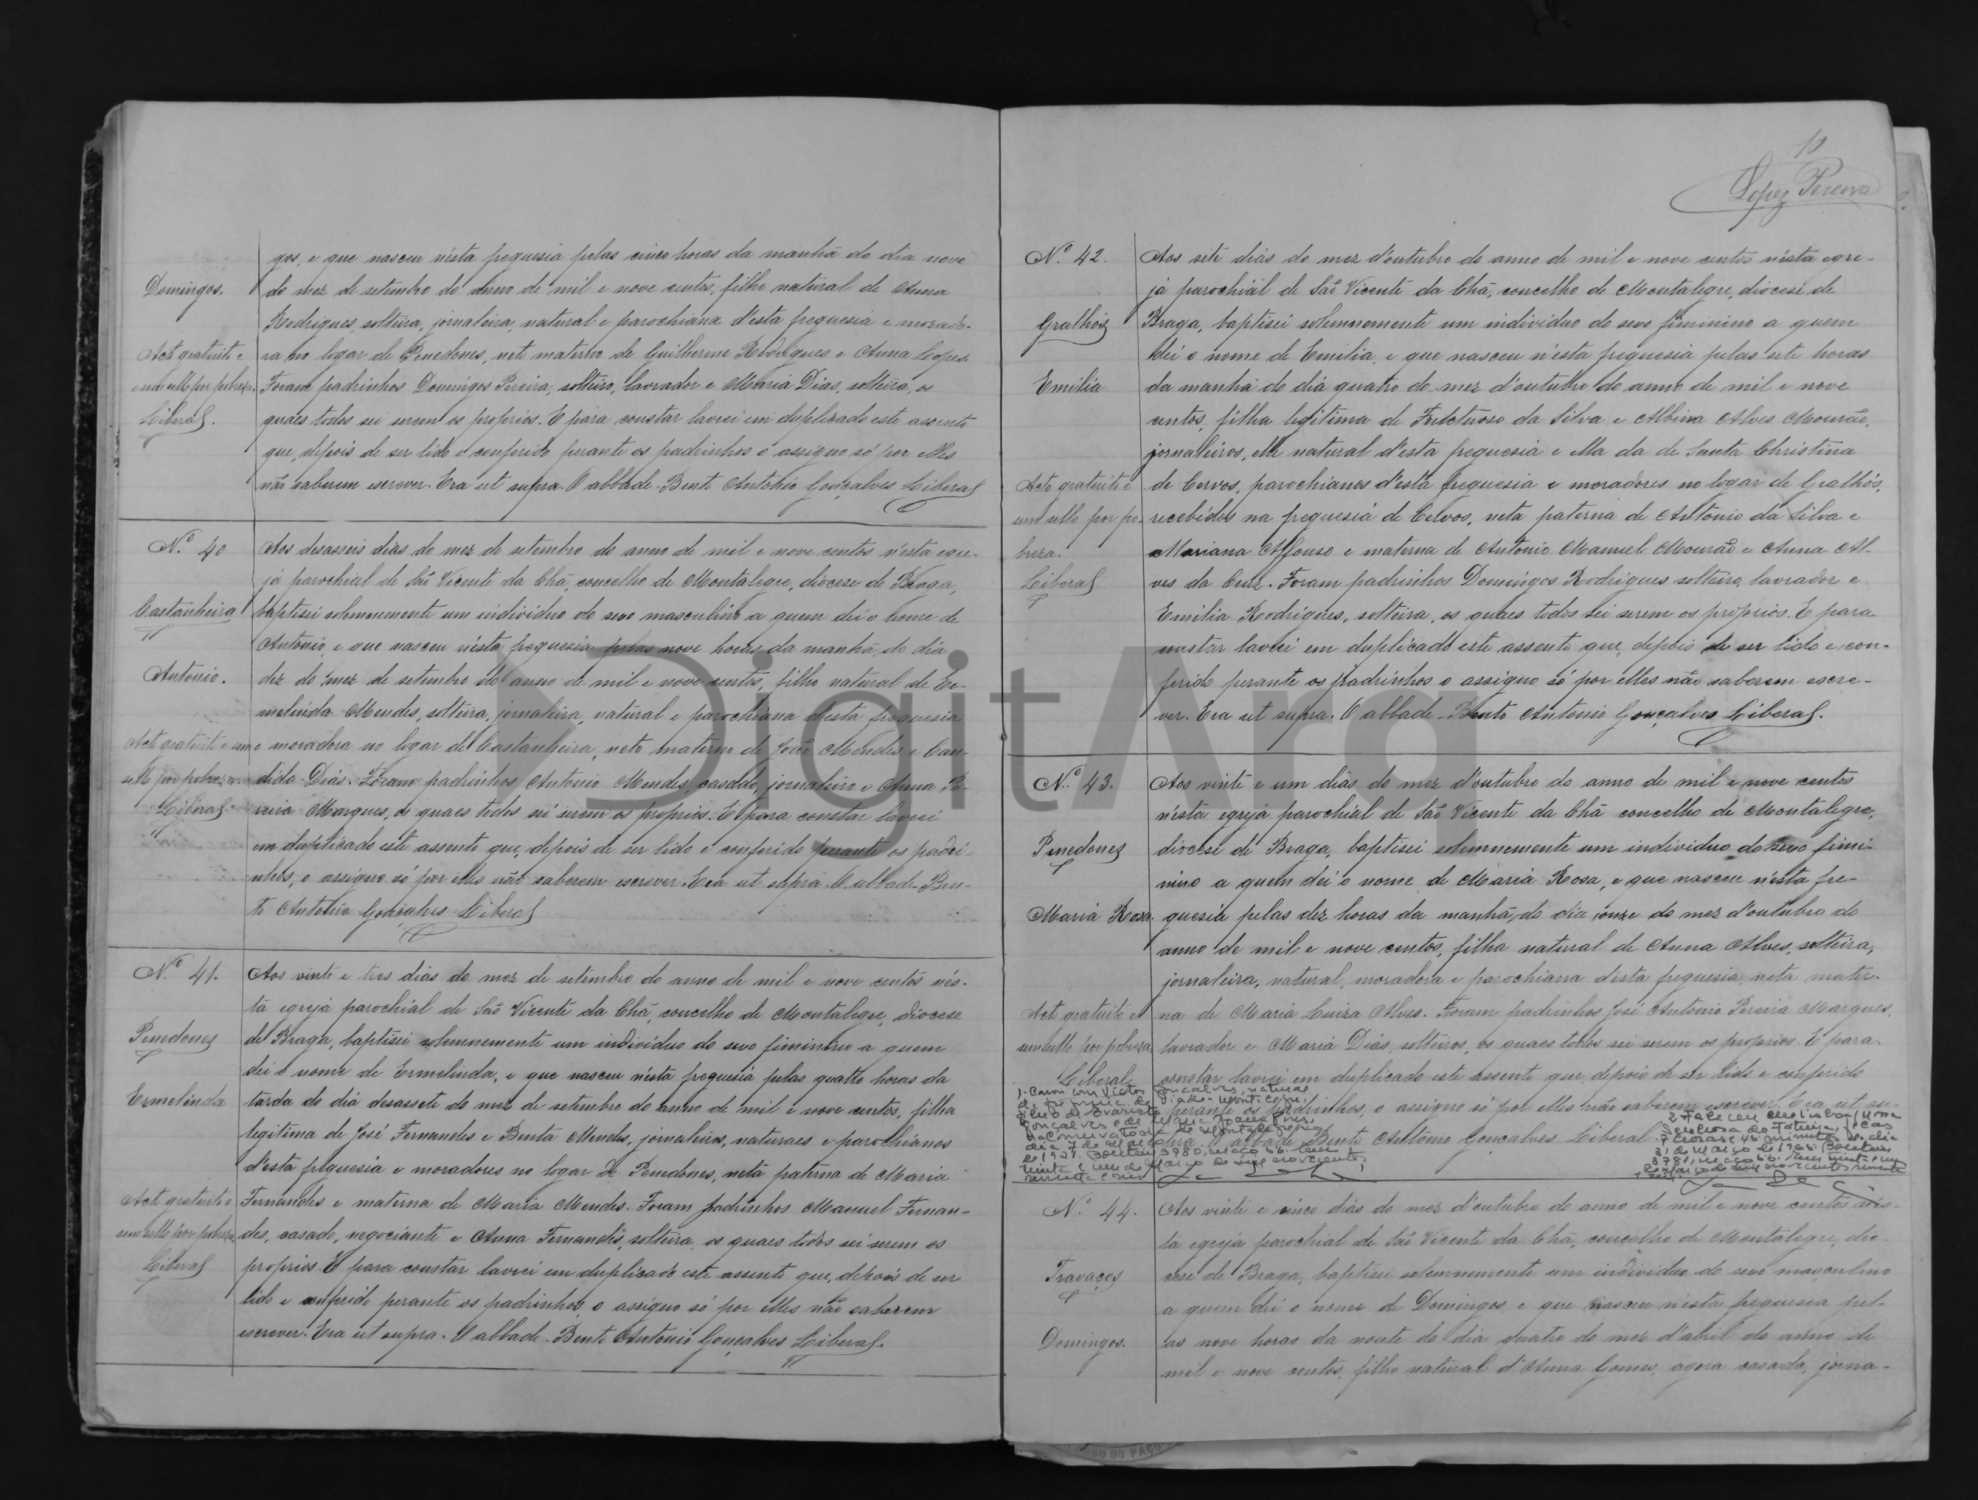 Domingos.
Acto gratuito e
sem sello por pobreza.
Liberal.
gos, e que nasceu n'esta freguesia pelas cinco horas da manhã do dia nove
do mez de setembro do anno de mil e nove centos, filho natural de Anna
Rodrigues, solteira, jornaleira, natural e parochiana d'esta freguesia e morado-
ra no logar de Penedones, neto materno de Guilherme Rodrigues e Anna Lopes.
Foram padrinhos Domingos Pereira, solteiro, lavrador e Maria Dias, solteira, os
quaes todos sei serem os proprios. E para constar lavrei em duplicado este assento
que, depois de ser lido e conferido perante os padrinhos o assigno só por elles
não saberem escrever. Era ut supra. O abbade Bento Antonio Gonçalves Liberal
Nº 40
Castanheira
Antonio.
Acto gratuito e
sem sello por pobreza.
Liberal
Aos desaseis dias do mez de setembro do anno de mil e nove centos n'esta egre-
ja parochial de São Vicente da Chã, concelho de Montalegre, diocese de Braga,
baptisei solemnemente um individuo do sexo masculino a quem dei o nome de
Antonio, e que nasceu n'esta freguesia pelas nove horas da manhã do dia
dez do mez de setembro do anno de mil e nove centos, filho natural de Er-
melinda Mendes, solteira, jornaleira, natural e parochiana d'esta freguesia
e moradora no logar de Castanheira, neto materno de João Mendes e Can-
dida Dias. Foram padrinhos Antonio Mendes, casado, jornaleiro e Anna Pe-
reira Marques, os quaes todos sei serem os proprios. E para constar lavrei
em duplicado este assento que, depois de ser lido e conferido perante os padri-
nhos, o assigno só por elles não saberem escrever. Era ut supra. O abbade Ben-
to Antonio Gonçalves Liberal
Nº 41.
Penedones
Ermelinda
Acto gratuito e
sem sello por pobreza
Liberal
Aos vinte e tres dias do mez de setembro do anno de mil e nove centos n'es-
ta egreja parochial de São Vicente da Chã, concelho de Montalegre, diocese
de Braga, baptisei solemnemente um individuo do sexo feminino a quem
dei o nome de Ermelinda, e que nasceu n'esta freguesia pelas quatro horas da
tarde do dia desassete do mez de setembro do anno de mil e nove centos, filha
legitima de José Fernandes e Benta Mendes, jornaleiros, naturaes e parochianos
d'esta freguesia e moradores no logar de Penedones, neta paterna de Maria
Fernandes e materna de Maria Mendes. Foram padrinhos Manuel Fernan-
des, casado, negociante e Anna Fernandes, solteira, os quaes todos sei serem os
proprios. E para constar lavrei em duplicado este assento que, depois de ser
lido e conferido perante os padrinhos, o assigno só por elles não saberem
escrever. Era ut supra. O abbade Bento Antonio Gonçalves Liberal.
10
Lopez Pereira
Nº 42.
Gralhós
Emilia
Acto gratuito e
sem sello por po-
breza.
Liberal
Aos sete dias do mez d'outubro do anno de mil e nove centos n'esta egre-
ja parochial de São Vicente da Chã, concelho de Montalegre, diocese de
Braga, baptisei solemnemente um individuo do sexo feminino a quem
dei o nome de Emilia, e que nasceu n'esta freguesia pelas sete horas
da manhã do dia quatro do mez d'outubro do anno de mil e nove
centos, filha legitima de Fructuoso da Silva e Albina Alves Mourão,
jornaleiros, elle natural d'esta freguesia e ella da de Santa Christina
de Cervos, parochianos d'esta freguesia e moradores no logar de Gralhós,
recebidos na freguesia de Cervos, neta paterna de Antonio da Silva e
Mariana Affonso e materna de Antonio Manuel Mourão e Anna Al-
ves da Cruz. Foram padrinhos Domingos Rodrigues solteiro, lavrador e
Emilia Rodrigues, solteira, os quaes todos sei serem os proprios. E para
constar lavrei em duplicado este assento que, depois de ser lido e con-
ferido perante os padrinhos o assigno só por elles não saberem escre-
ver. Era ut supra. O abbade Bento Antonio Gonçalves Liberal.
Nº 43.
Penedones
Maria Rosa.
Acto gratuito e
sem sello por pobreza
Liberal
Aos vinte e um dias do mez d'outubro do anno de mil e nove centos
n'esta egreja parochial de São Vicente da Chã concelho de Montalegre,
diocese de Braga, baptisei solemnemente um individuo do sexo femi-
nino a quem dei o nome de Maria Rosa, e que nasceu n'esta fre-
guesia pelas dez horas da manhã do dia onze do mez d'outubro do
anno de mil e nove centos, filha natural de Anna Alves, solteira,
jornaleira, natural, moradora e parochiana d'esta freguesia, neta mater-
na de Maria Luiza Alves. Foram padrinhos José Antonio Pereira Marques,
lavrador e Maria Dias, solteiros, os quaes todos sei serem os proprios. E para
constar lavrei em duplicado este assento que, depois de ser lido e conferido
perante os padrinhos, o assigno só por elles não saberem escrever. Era ut su-
pra. O abbade Bento Antonio Gonçalves Liberal
Nº 44.
Travaços
Domingos.
Aos vinte e cinco dias do mez d'outubro do anno de mil e nove centos n'es-
ta egreja parochial de São Vicente da Chã, concelho de Montalegre, dio-
cese de Braga, baptisei solemnemente um individuo do sexo masculino
a quem dei o nome de Domingos e que nasceu n'esta freguesia pel-
as nove horas da noute do dia quatro do mez d'abril do anno de
mil e nove centos, filho natural d'Anna Gomes, agora casada, jorna-
DigitArq